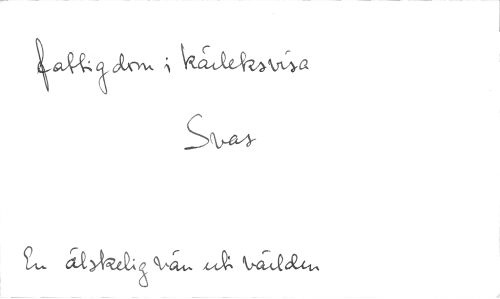 fattigdom i kärleksvisa
Svas
En älskelig vän uti världen